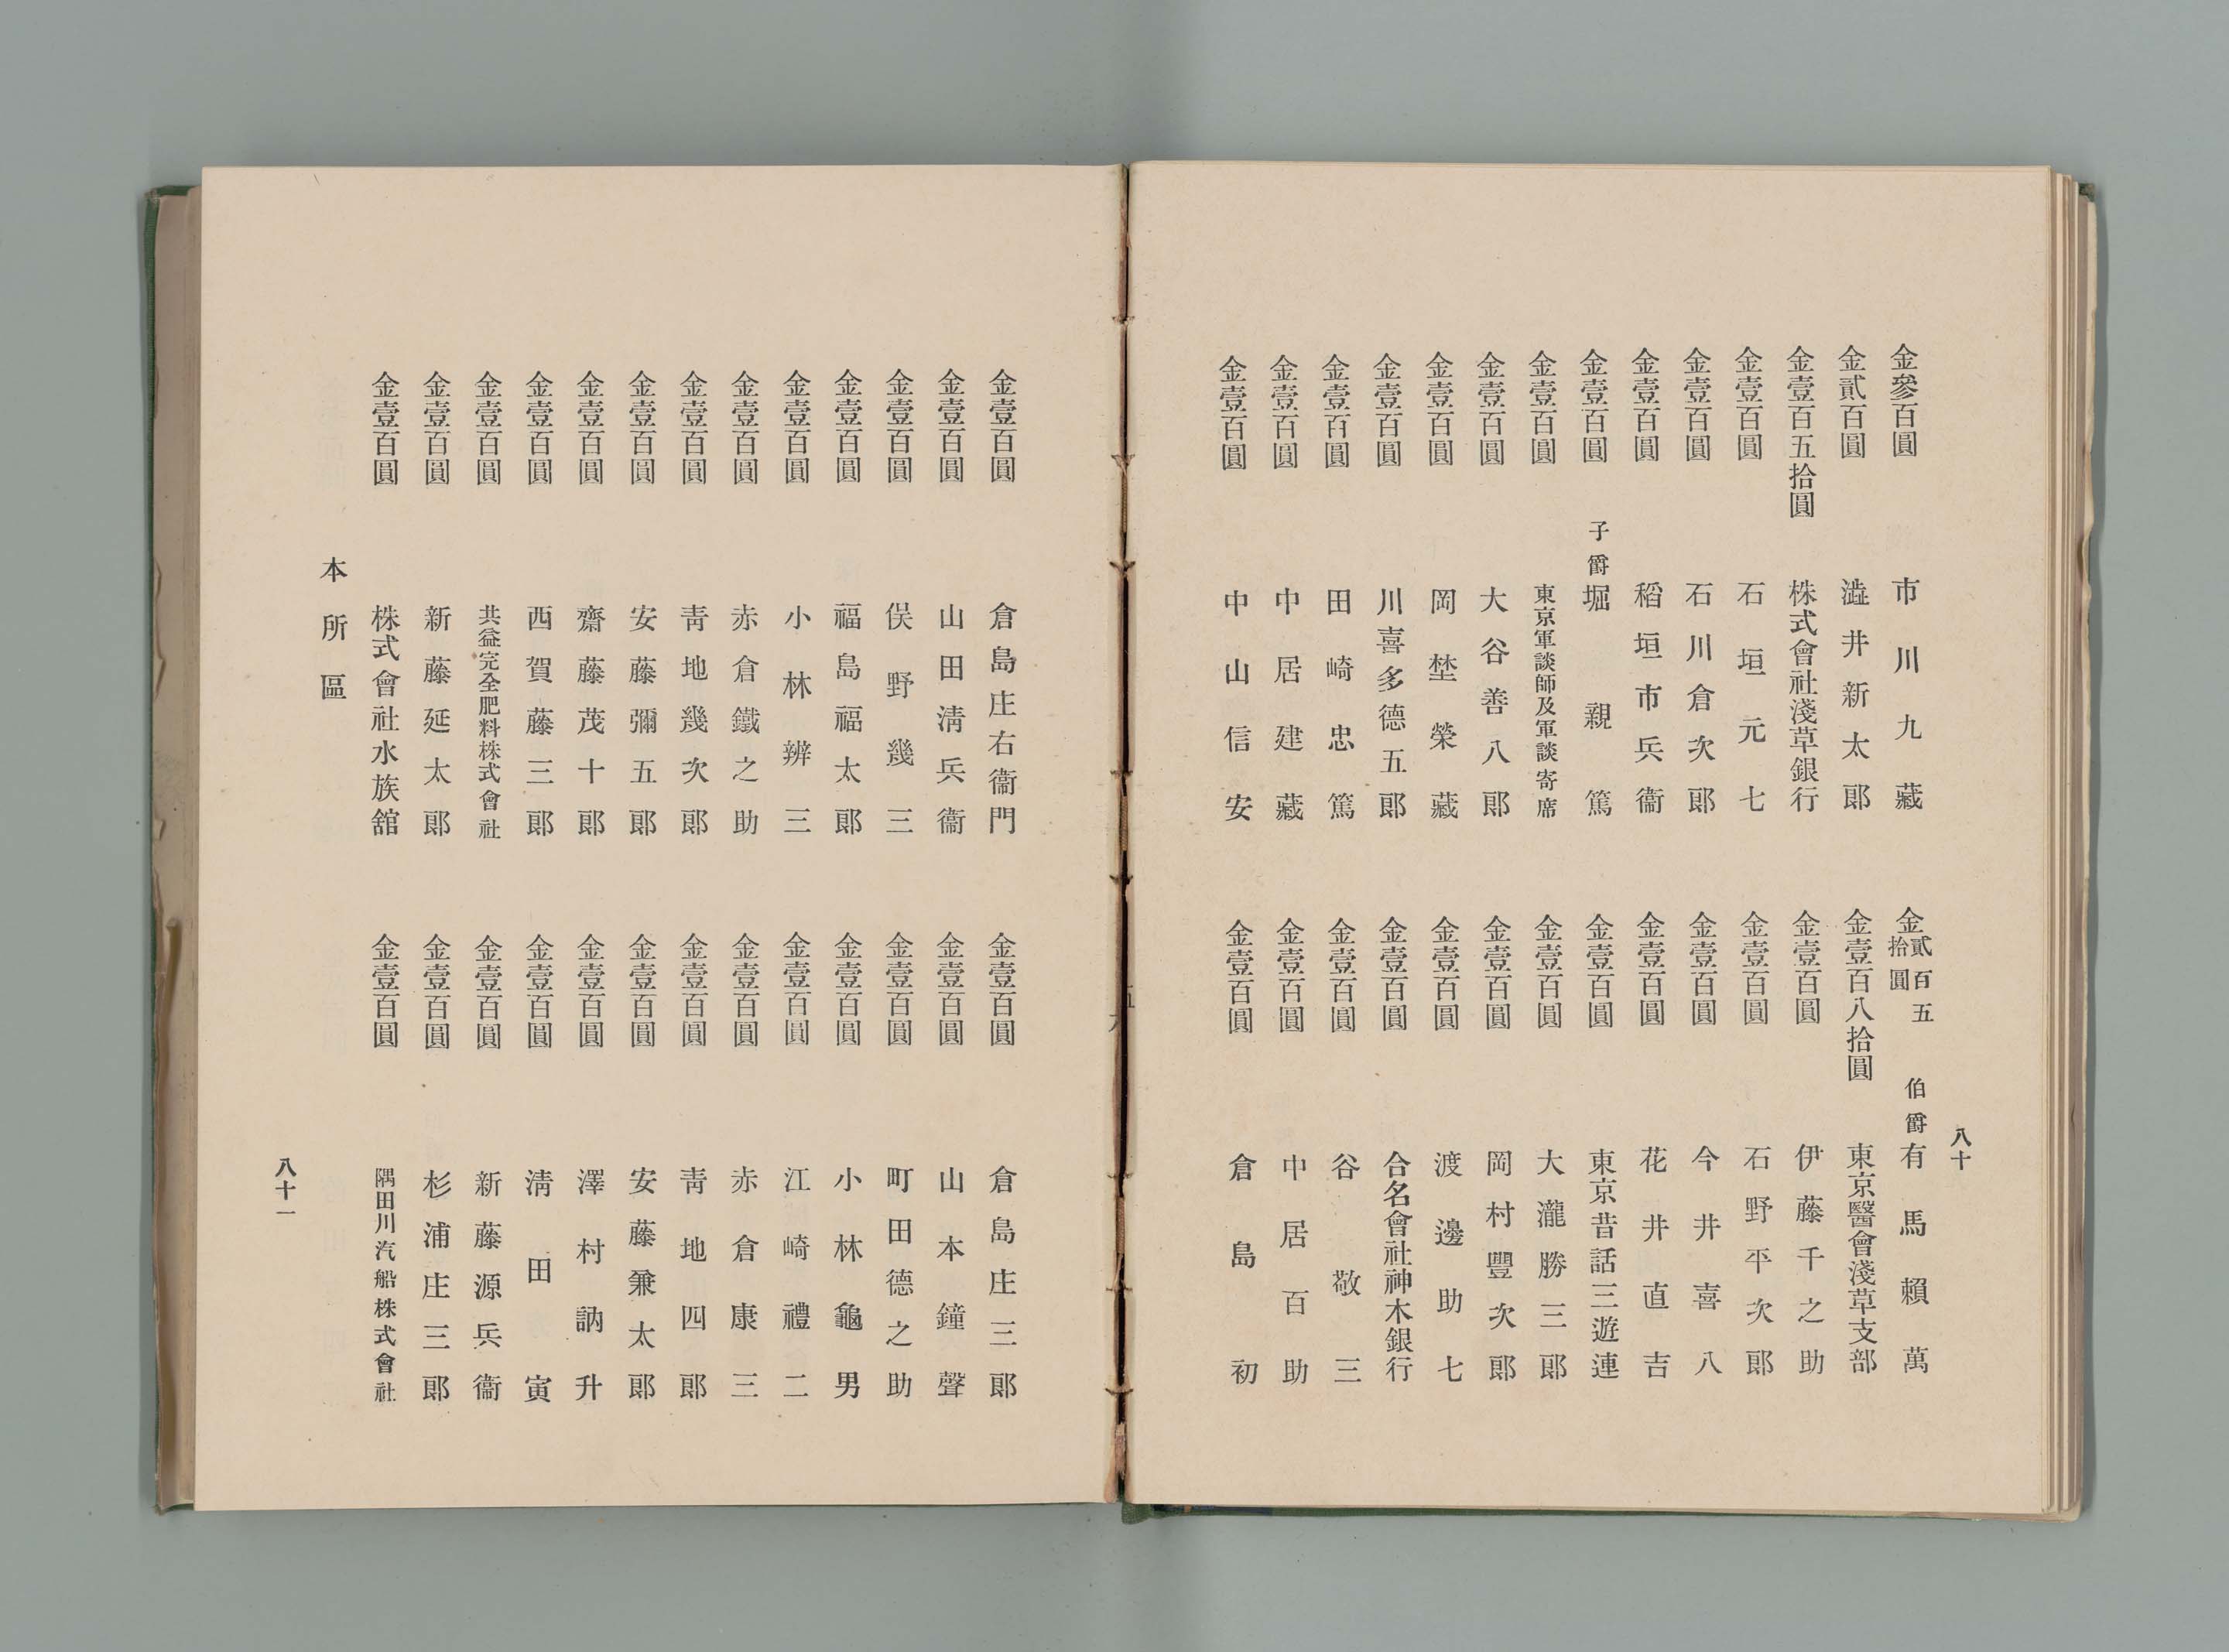 八十
金參百圓 市川九藏
金貳百圓 澁井新太郎
金壹百五拾圓 株式會社淺草銀行
金壹百圓 石垣元七
金壹百圓 石川倉次郎
金壹百圓 稻垣市兵衞
金壹百圓 子爵 堀親篤
金壹百圓 東京軍談師及軍談寄席
金壹百圓 大谷善八郎
金壹百圓 岡埜榮藏
金壹百圓 川喜多德五郎
金壹百圓 田崎忠篤
金壹百圓 中居建藏
金壹百圓 中山信安
金貳百五拾圓 伯爵 有馬賴萬
金壹百八拾圓 東京醫會淺草支部
金壹百圓 伊藤千之助
金壹百圓 石野平次郎
金壹百圓 今井喜八
金壹百圓 花井直吉
金壹百圓 東京昔話三遊連
金壹百圓 大瀧勝三郎
金壹百圓 岡村豐次郎
金壹百圓 渡邊助七
金壹百圓 合名會社神木銀行
金壹百圓 谷敬三
金壹百圓 中居百助
金壹百圓 倉島初
金壹百圓 倉島庄右衞門
金壹百圓 山田淸兵衞
金壹百圓 俣野幾三
金壹百圓 福島福太郎
金壹百圓 小林辨三
金壹百圓 赤倉鐵之助
金壹百圓 靑地幾次郎
金壹百圓 安藤彌五郎
金壹百圓 齋藤茂十郎
金壹百圓 西賀藤三郎
金壹百圓 共益完全肥料株式會社
金壹百圓 新藤延太郎
金壹百圓 株式會社水族舘
金壹百圓 倉島庄三郎
金壹百圓 山本鐘聲
金壹百圓 町田德之助
金壹百圓 小林龜男
金壹百圓 江崎禮二
金壹百圓 赤倉康三
金壹百圓 靑地四郎
金壹百圓 安藤兼太郎
金壹百圓 澤村訥升
金壹百圓 淸田寅
金壹百圓 新藤源兵衞
金壹百圓 杉浦庄三郎
金壹百圓 隅田川汽船株式會社
本所區
八十一